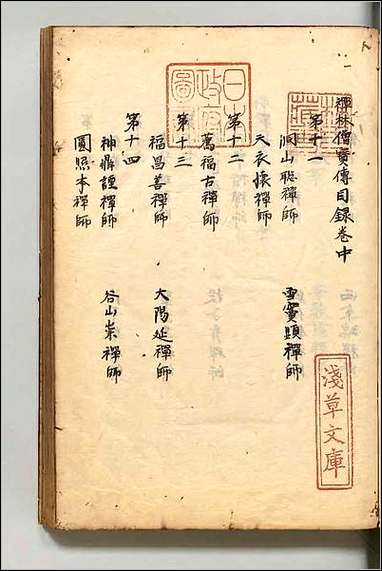 禪林僧寶傳目録卷中
第十一
洞山聡禪師
雪竇顕禪師
天衣懐禪師
第十二
薦福古禪師
第十三
福昌善禪師
大陽延禪師
第十四
神鼎諲禪師
谷山崇禪師
圓照本禪師
日本
政府
圖書
淺草文庫